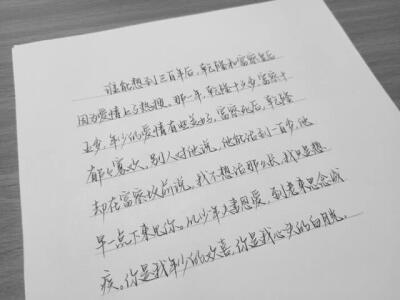 谁能想到三百年后，乾隆和富察皇后
因为爱情上了热搜。那一年，乾隆十六岁，富察十
五岁，年少的爱情有些美好，富察死后，乾隆
郁郁寡欢，别人对他说，他能活到一百岁，他
却在富察坟前说，我不想活那么长，我只是想
早一点下来见你。从少年夫妻恩爱，到老来思念成
疾。你是我年少的欢喜，你是我心头的白月光。